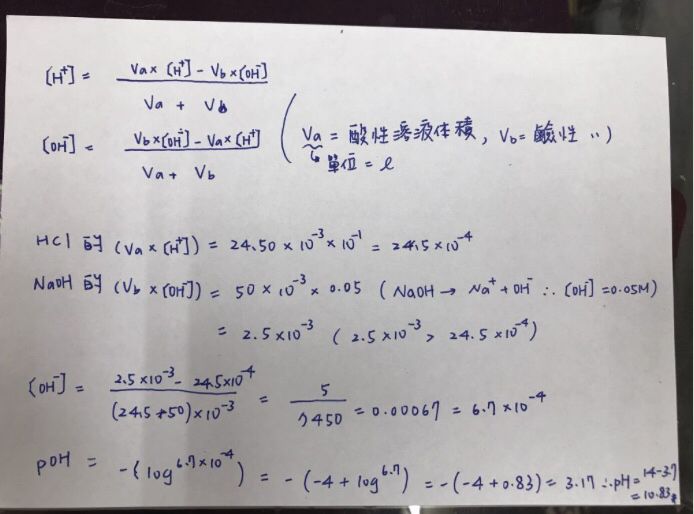 [H⁺] = (Va × [H⁺] - Vb × [OH⁻]) / (Va + Vb)
[OH⁻] = (Vb × [OH⁻] - Va × [H⁺]) / (Va + Vb) (Va = 酸性溶液体積, Vb = 鹼性 〃)
↳ 單位 = ℓ
HCl 的 (Va × [H⁺]) = 24.50 × 10⁻³ × 10⁻¹ = 24.5 × 10⁻⁴
NaOH 的 (Vb × [OH⁻]) = 50 × 10⁻³ × 0.05 (NaOH → Na⁺ + OH⁻ ∴ [OH⁻] = 0.05M)
= 2.5 × 10⁻³ (2.5 × 10⁻³ > 24.5 × 10⁻⁴)
[OH⁻] = (2.5 × 10⁻³ - 24.5 × 10⁻⁴) / ((24.5 + 50) × 10⁻³) = 5 / 7450 = 0.00067 = 6.7 × 10⁻⁴
pOH = -(log^6.7×10⁻⁴) = -(-4 + log^6.7) = -(-4 + 0.83) = 3.17 ∴ pH = 14-3.17
= 10.83